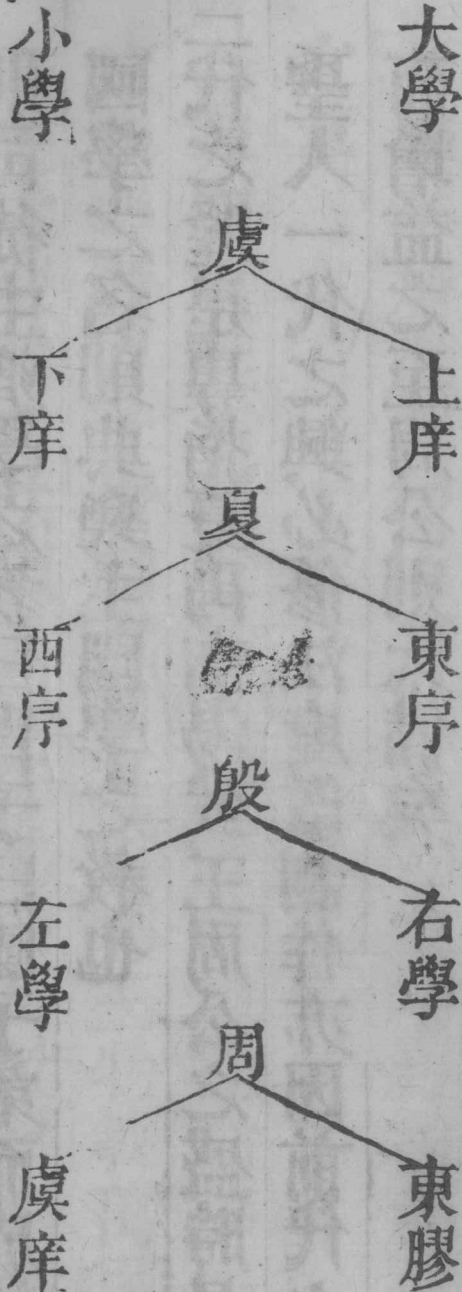 大學
上庠
東序
右學
東膠
虞
夏
殷
周
小學
下庠
西序
左學
虞庠